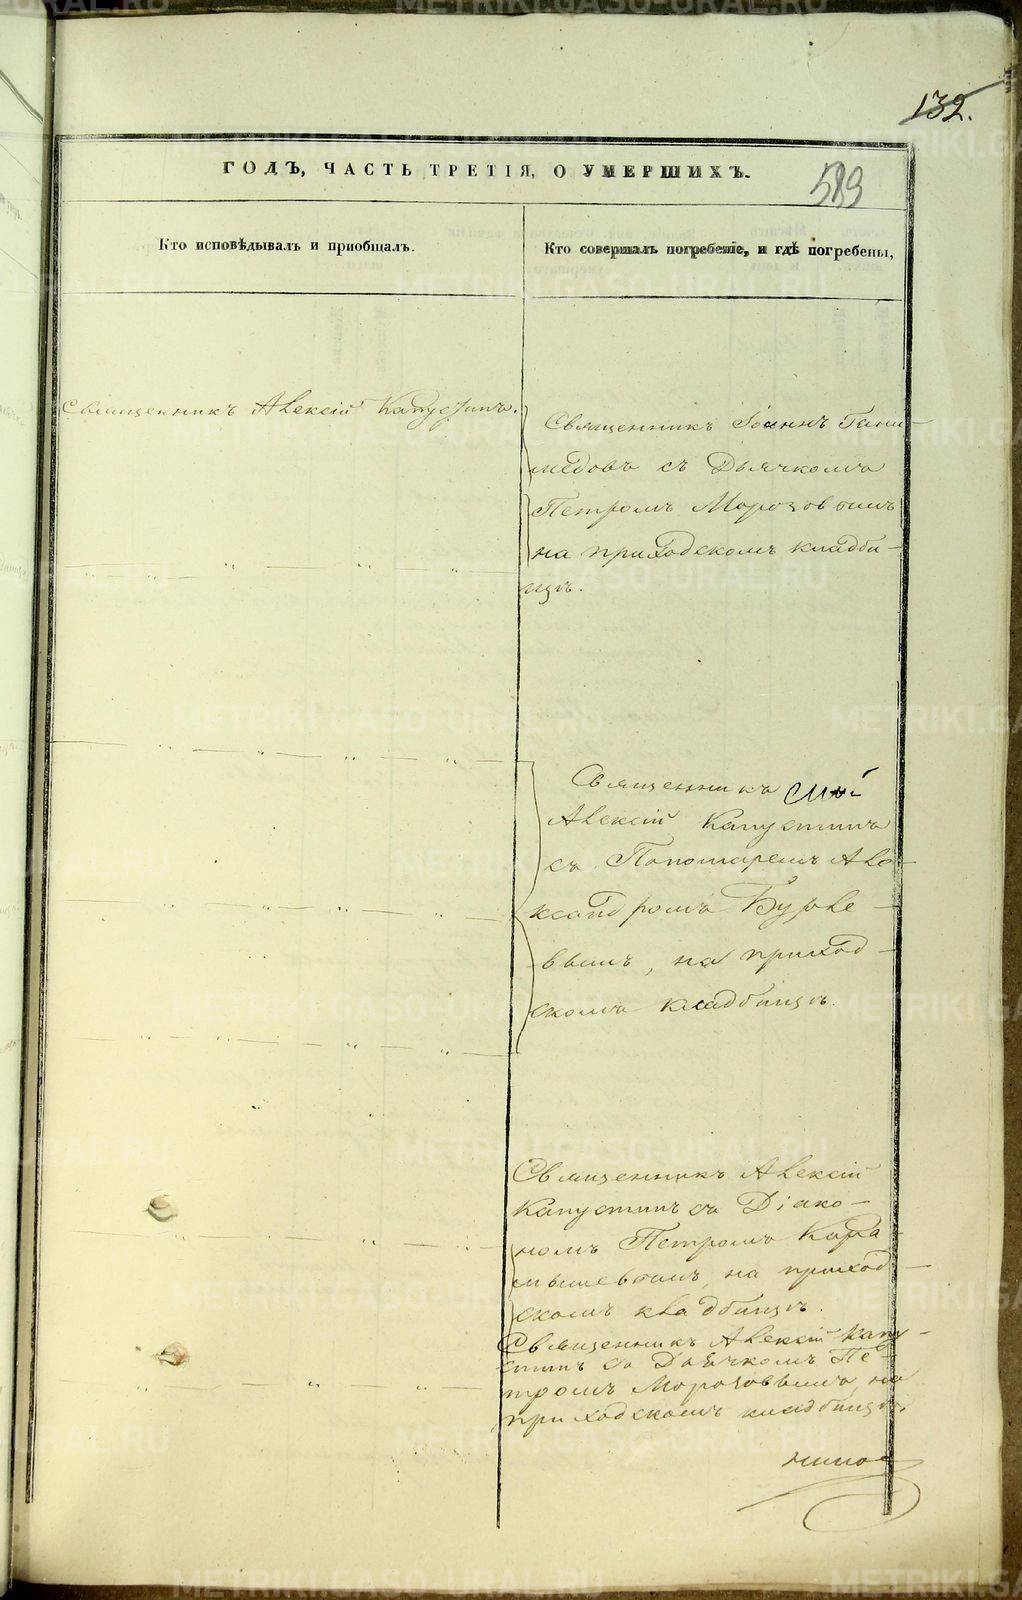 132.
589
ГОДЪ, ЧАСТЬ ТРЕТІЯ, О УМЕРШИХЪ.
Кто исповѣдывалъ и пріобщалъ.
Кто совершалъ погребеніе, и гдѣ погребены,
Священникъ Алексій Капустинъ.
Священникъ Іоаннъ Гани-
медовъ съ Дьячкомъ
Петромъ Морозовымъ
на приходскомъ кладби-
щѣ.
Священникъ
Алексій Капустинъ
съ Пономаремъ Але-
ксандромъ
вымъ, на приход-
скомъ кладбищѣ.
Священникъ Алексій
Капустинъ съ Діако-
номъ Петромъ Кара-
мышевымъ, на приход-
скомъ кладбищѣ.
Священникъ Алексій Капу-
стинъ съ Дьячкомъ Пе-
тромъ Морозовымъ, на
приходскомъ кладбищѣ.
METRIKI.GASO-URAL.RU